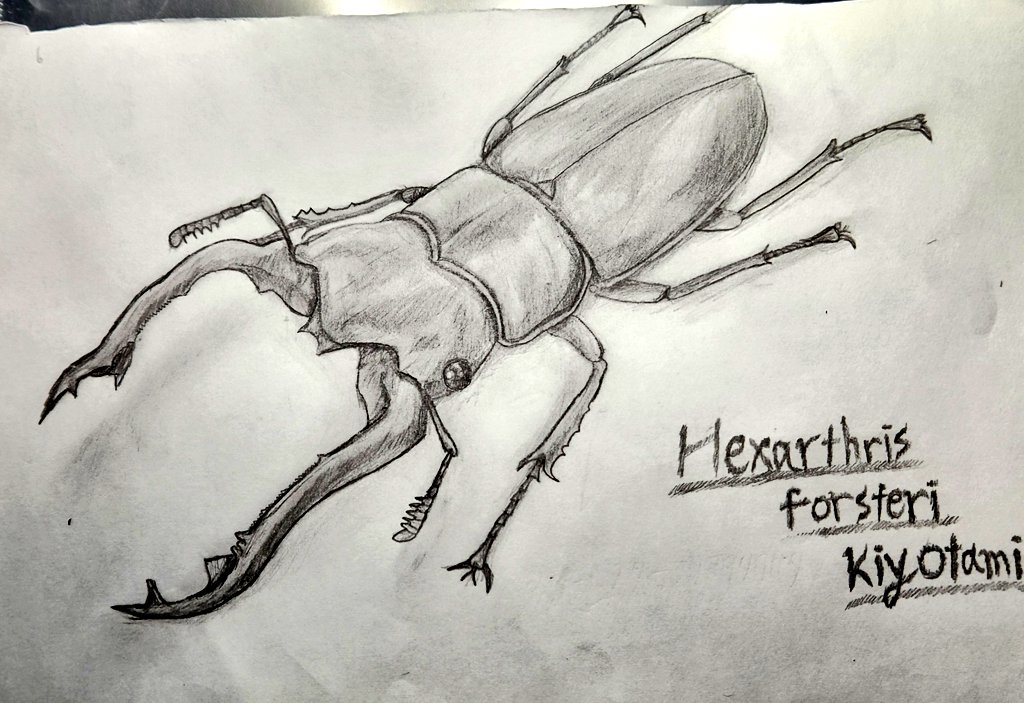 Hexarthris
forsteri
Kiyotami